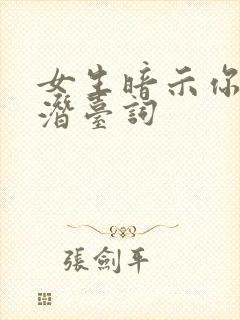 女生暗示你
潛臺詞
張劍平